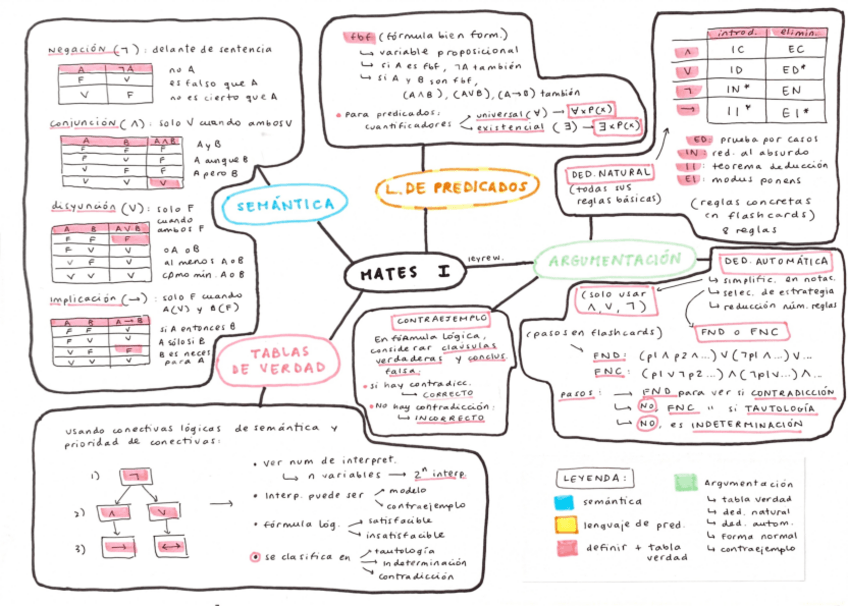 Negación (¬): delante de sentencia
A ¬A
F V
V F
no A
es falso que A
no es cierto que A
Conjunción (∧): solo V cuando ambos V
A B A∧B
F F F
F V F
V F F
V V V
A y B
A aunque B
A pero B
disyunción (∨): solo F
cuando
ambos F
A B A∨B
F F F
F V V
V F V
V V V
o A o B
al menos A o B
como mín. A o B
Implicación (→): solo F cuando
A(V) y B(F)
A B A→B
F F V
F V V
V F F
V V V
si A entonces B
A sólo si B
B es neces.
para A
SEMÁNTICA
fbf (fórmula bien form.)
↳ variable proposicional
↳ si A es fbf, ¬A también
↳ si A y B son fbf,
(A∧B), (A∨B), (A→B) también
• Para predicados:
cuantificadores
universal (∀) → ∀xP(x)
existencial (∃) → ∃xP(x)
L. DE PREDICADOS
introd. elimin.
∧ IC EC
∨ ID ED*
¬ IN* EN
→ II* EI*
ED prueba por casos
IN: red. al absurdo
II: teorema deducción
EI: modus ponens
(reglas concretas
en flashcards)
8 reglas
DED. NATURAL
(todas sus
reglas básicas)
MATES I
leyrew.
ARGUMENTACIÓN
TABLAS
DE VERDAD
CONTRAEJEMPLO
En fórmula lógica,
considerar cláusulas
verdaderas y conclus.
falsa.
• si hay contradicc.
↳ CORRECTO
• No hay contradicción:
↳ INCORRECTO
DED. AUTOMÁTICA
↳ simplific. en notac.
↳ selec. de estrategia
↳ reducción núm. reglas
(solo usar
∧, ∨, ¬)
FND o FNC
(pasos en flashcards)
FND: (p1∧p2∧...)∨(¬p1∧...)∨...
FNC: (p1∨¬p2...)∧(¬p1∨...)∧...
pasos: → FND para ver si CONTRADICCIÓN
↳ NO, FNC " si TAUTOLOGÍA
↳ NO, es INDETERMINACIÓN
usando conectivas lógicas de semántica y
prioridad de conectivas:
1) ¬
2) ∧ ∨
3) → ↔
• Ver num de interpret.
↳ n variables → 2ⁿ interp.
• Interp. puede ser
modelo
contraejemplo
• fórmula lóg.
satisfacible
insatisfacible
• se clasifica en
tautología
indeterminación
contradicción
LEYENDA:
semántica
lenguaje de pred.
definir + tabla
verdad
Argumentación
↳ tabla verdad
↳ ded. natural
↳ ded. autom.
↳ forma normal
↳ contraejemplo